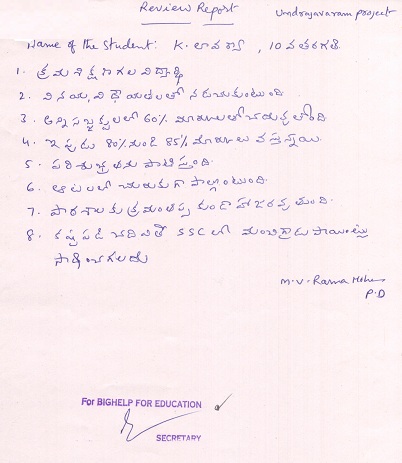 Review Report
Undrajavaram project
Name of the Student: K. లావణ్య, 10 వ తరగతి
1. క్రమశిక్షణ గల విద్యార్థి
2. వినయ, విధేయతలతో నడుచుకుంటుంది.
3. అన్ని సబ్జెక్టులలో 60% మార్కులతో
4. ఇప్పుడు 80% నుండి 85% మార్కులు వస్తున్నాయి.
5. పరిశుభ్రతను పాటిస్తుంది.
6. ఆటలలో చురుకుగా పాల్గొంటుంది.
7. పాఠశాలకు క్రమంతప్పకుండా హాజరవుతుంది.
8. కష్టపడి చదివితే SSC లో మంచి గ్రేడు పాయింట్లు
సాధించగలదు
M.V. Rama Mohan
P.D
For BIGHELP FOR EDUCATION
SECRETARY